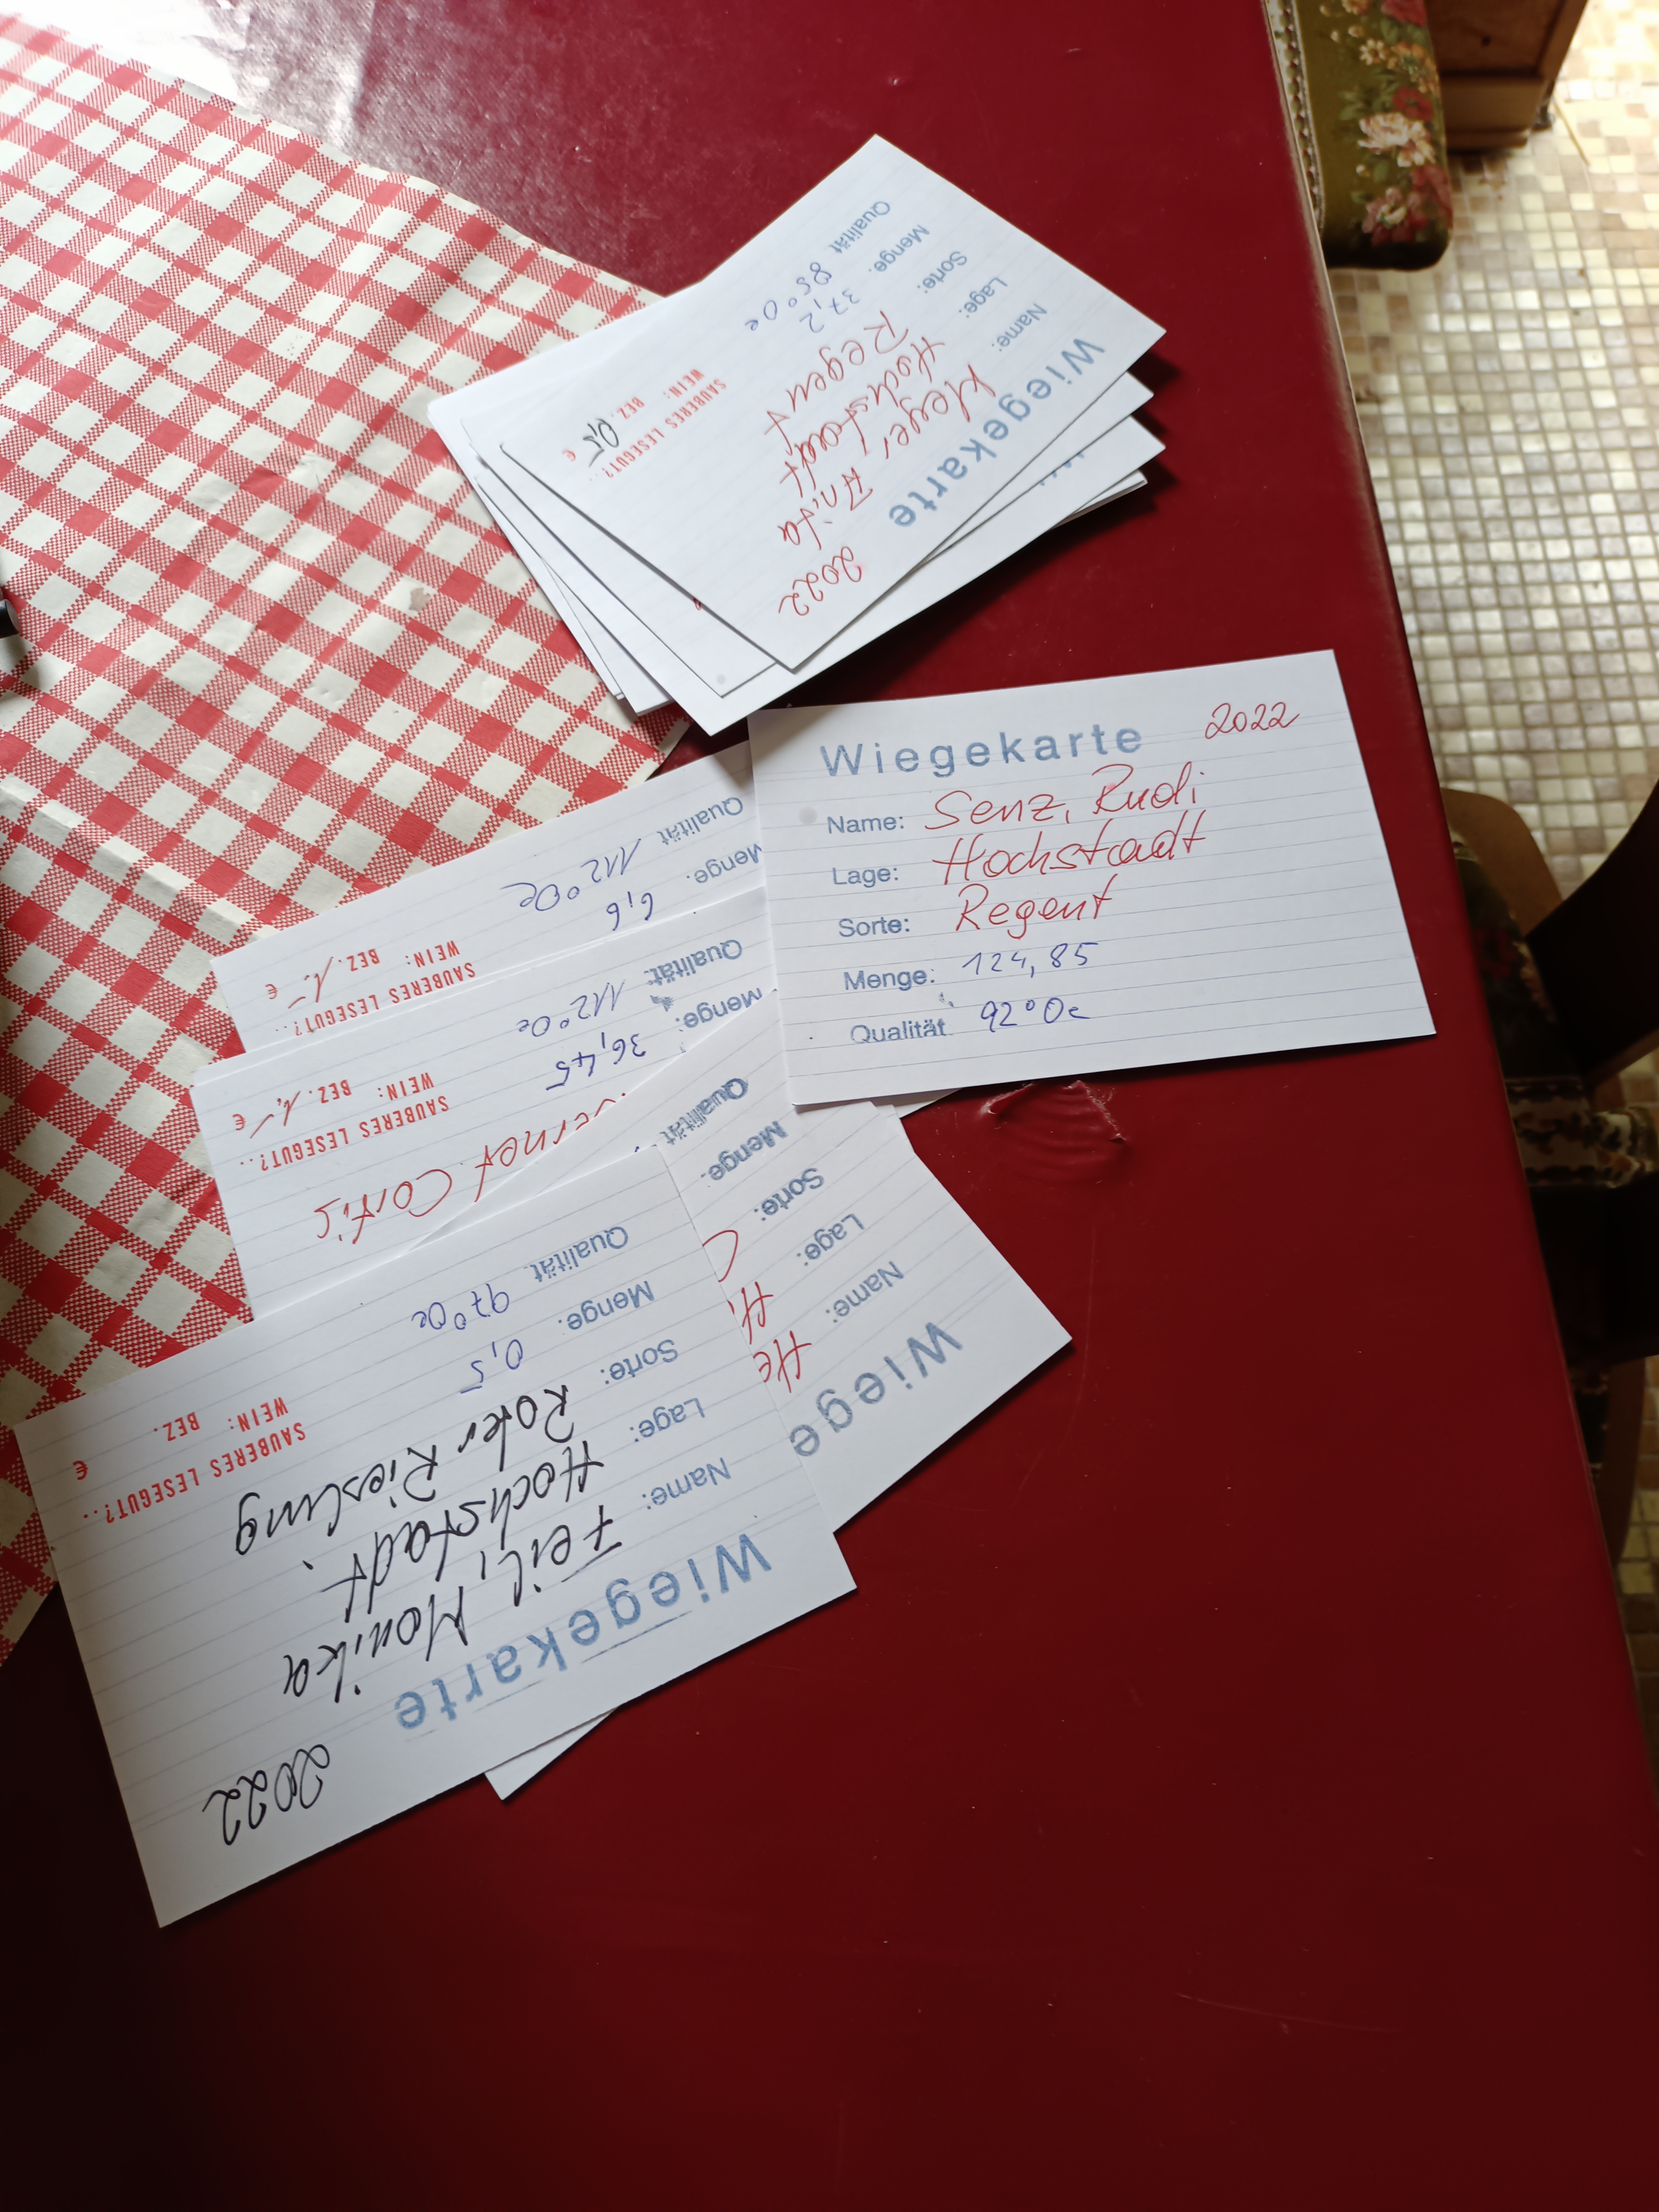 Wiegekarte 2022
Name: Meyer, Anita
Lage: Hochstadt
Sorte: Regent
Menge: 37,2
Qualität 85° Oe
SAUBERES LESEGUT?..
WEIN: BEZ. €
Wiegekarte 2022
Name: Senz, Rudi
Lage: Hochstadt
Sorte: Regent
Menge: 124,85
Qualität 92° Oe
Menge: 6,6
Qualität 112° Oe
SAUBERES LESEGUT?..
WEIN: BEZ. 1.- €
Cortis
Menge: 36,45
Qualität 112° Oe
SAUBERES LESEGUT?..
WEIN: BEZ. 1,- €
Wiege
Name: He
Lage: H
Sorte: C
Menge:
Qualität
Wiegekarte 2022
Name: Feil, Monika
Lage: Hochstadt
Sorte: Roter Riesling
Menge: 0,5
Qualität 97° Oe
SAUBERES LESEGUT?..
WEIN: BEZ. €